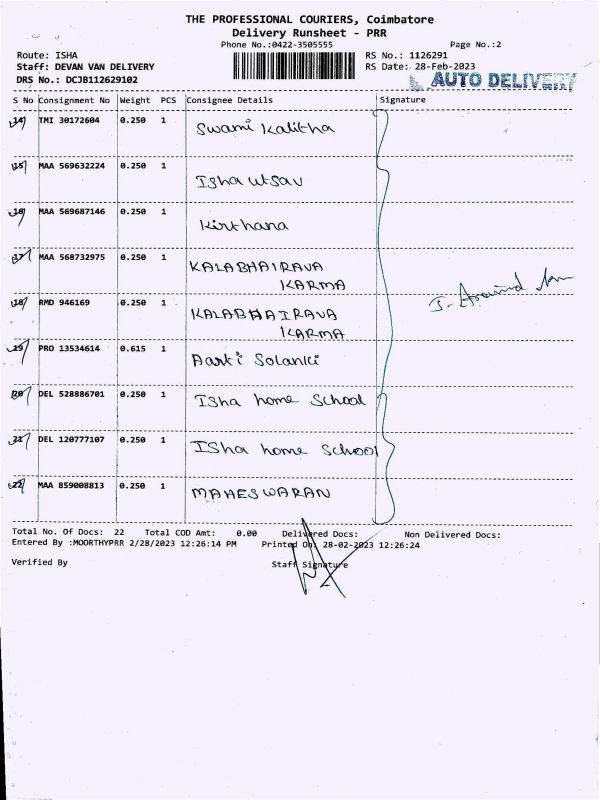 THE PROFESSIONAL COURIERS, Coimbatore
Delivery Runsheet - PRR
Phone No.:0422-3505555 Page No.:2
Route: ISHA RS No.: 1126291
Staff: DEVAN VAN DELIVERY RS Date: 28-Feb-2023
DRS No.: DCJB112629102 AUTO DELIVERY
S No Consignment No Weight PCS Consignee Details Signature
14 TMI 30172604 0.250 1 Swami Kalitha
15 MAA 569632224 0.250 1 Isha utsav
16 MAA 569687146 0.250 1 Kirthana
17 MAA 568732975 0.250 1 KALABHAIRAVA
KARMA
18 RMD 946169 0.250 1 KALABHAIRAVA
KARMA
19 PRO 13534614 0.615 1 Aarti Solanki
20 DEL 528886701 0.250 1 Isha home School
21 DEL 120777107 0.250 1 ISha home School
22 MAA 859008813 0.250 1 MAHESWARAN
Total No. Of Docs: 22 Total COD Amt: 0.00 Delivered Docs: Non Delivered Docs:
Entered By :MOORTHYPRR 2/28/2023 12:26:14 PM Printed On: 28-02-2023 12:26:24
Verified By Staff Signature